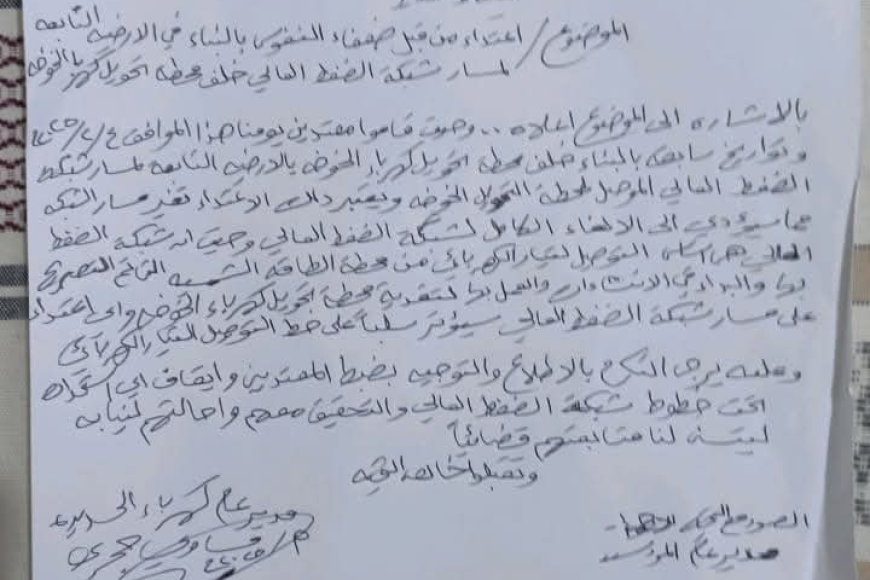 الموضوع / اعتداء من قبل ضعفاء النفوس بالبناء في الارضيه التابعه
لمسار شبكة الضغط العالي خلف محطه تحويل كهرباء الخوخه
بالاشاره الى الموضوع اعلاه .. وحيث قاموا معتدين يومنا هذا الموافق
وتواريخ سابقه بالبناء خلف محطه تحويل كهرباء الخوخه بالارضيه التابعه لمسار شبكة
الضغط العالي الموصل لمحطة التحويل الخوخه ويعتبر ذالك الاعتداء تغير مسار الشبكه
مما سيؤدي الى الالغاء الكامل لشبكة الضغط العالي وحيث ان شبكة الضغط
العالي هي اساس التوصيل لتيار الكهربائي من محطة الطاقه الشمسيه التصريح
بها والبدء في الانشاءات والعمل بها لتغذية محطة تحويل كهرباء الخوخه واي اعتداء
على مسار شبكة الضغط العالي سيؤثر سلباً على خط التوصيل التيار الكهربائي
وعليه يرجى التكرم بالاطلاع والتوجيه بضبط المعتدين وايقاف اي استحداث
تحت خطوط شبكة الضغط العالي والتحقيق معهم واحالتهم لنيابه
ليتسنى لنا متابعتهم قضائياً
وتقبلوا خالص التحيه
مدير عام كهرباء الحديده
مدير عام